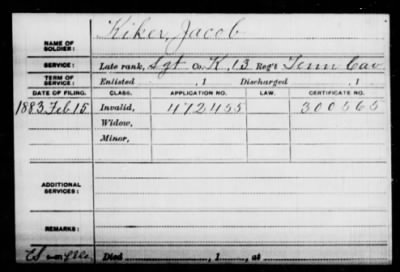 Kiker, Jacob
NAME OF SOLDIER:
SERVICE: Late rank, Sgt Co. K, 13 Reg't Tenn Cav
TERM OF SERVICE: Enlisted , 1 Discharged , 1
DATE OF FILING. CLASS. APPLICATION NO. LAW. CERTIFICATE NO.
1883 Feb 15 Invalid, 472455 300565
Widow,
Minor,
ADDITIONAL SERVICES:
REMARKS:
Died , 1 , at